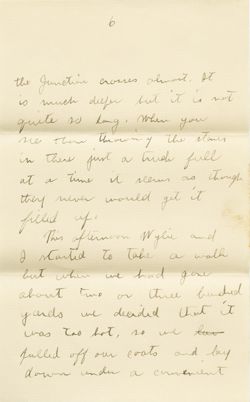 6
the Junction crosses almost. It
is much deeper but it is not
quite so long. When you
see them throwing the stones
in there just a truck full
at a time it seems as though
they never would get it
filled up.
This afternoon Wylie and
I started to take a walk
but when we had gone
about two or three hundred
yards we decided that it
was too hot, so we
pulled off our coats and lay
down under a convenient